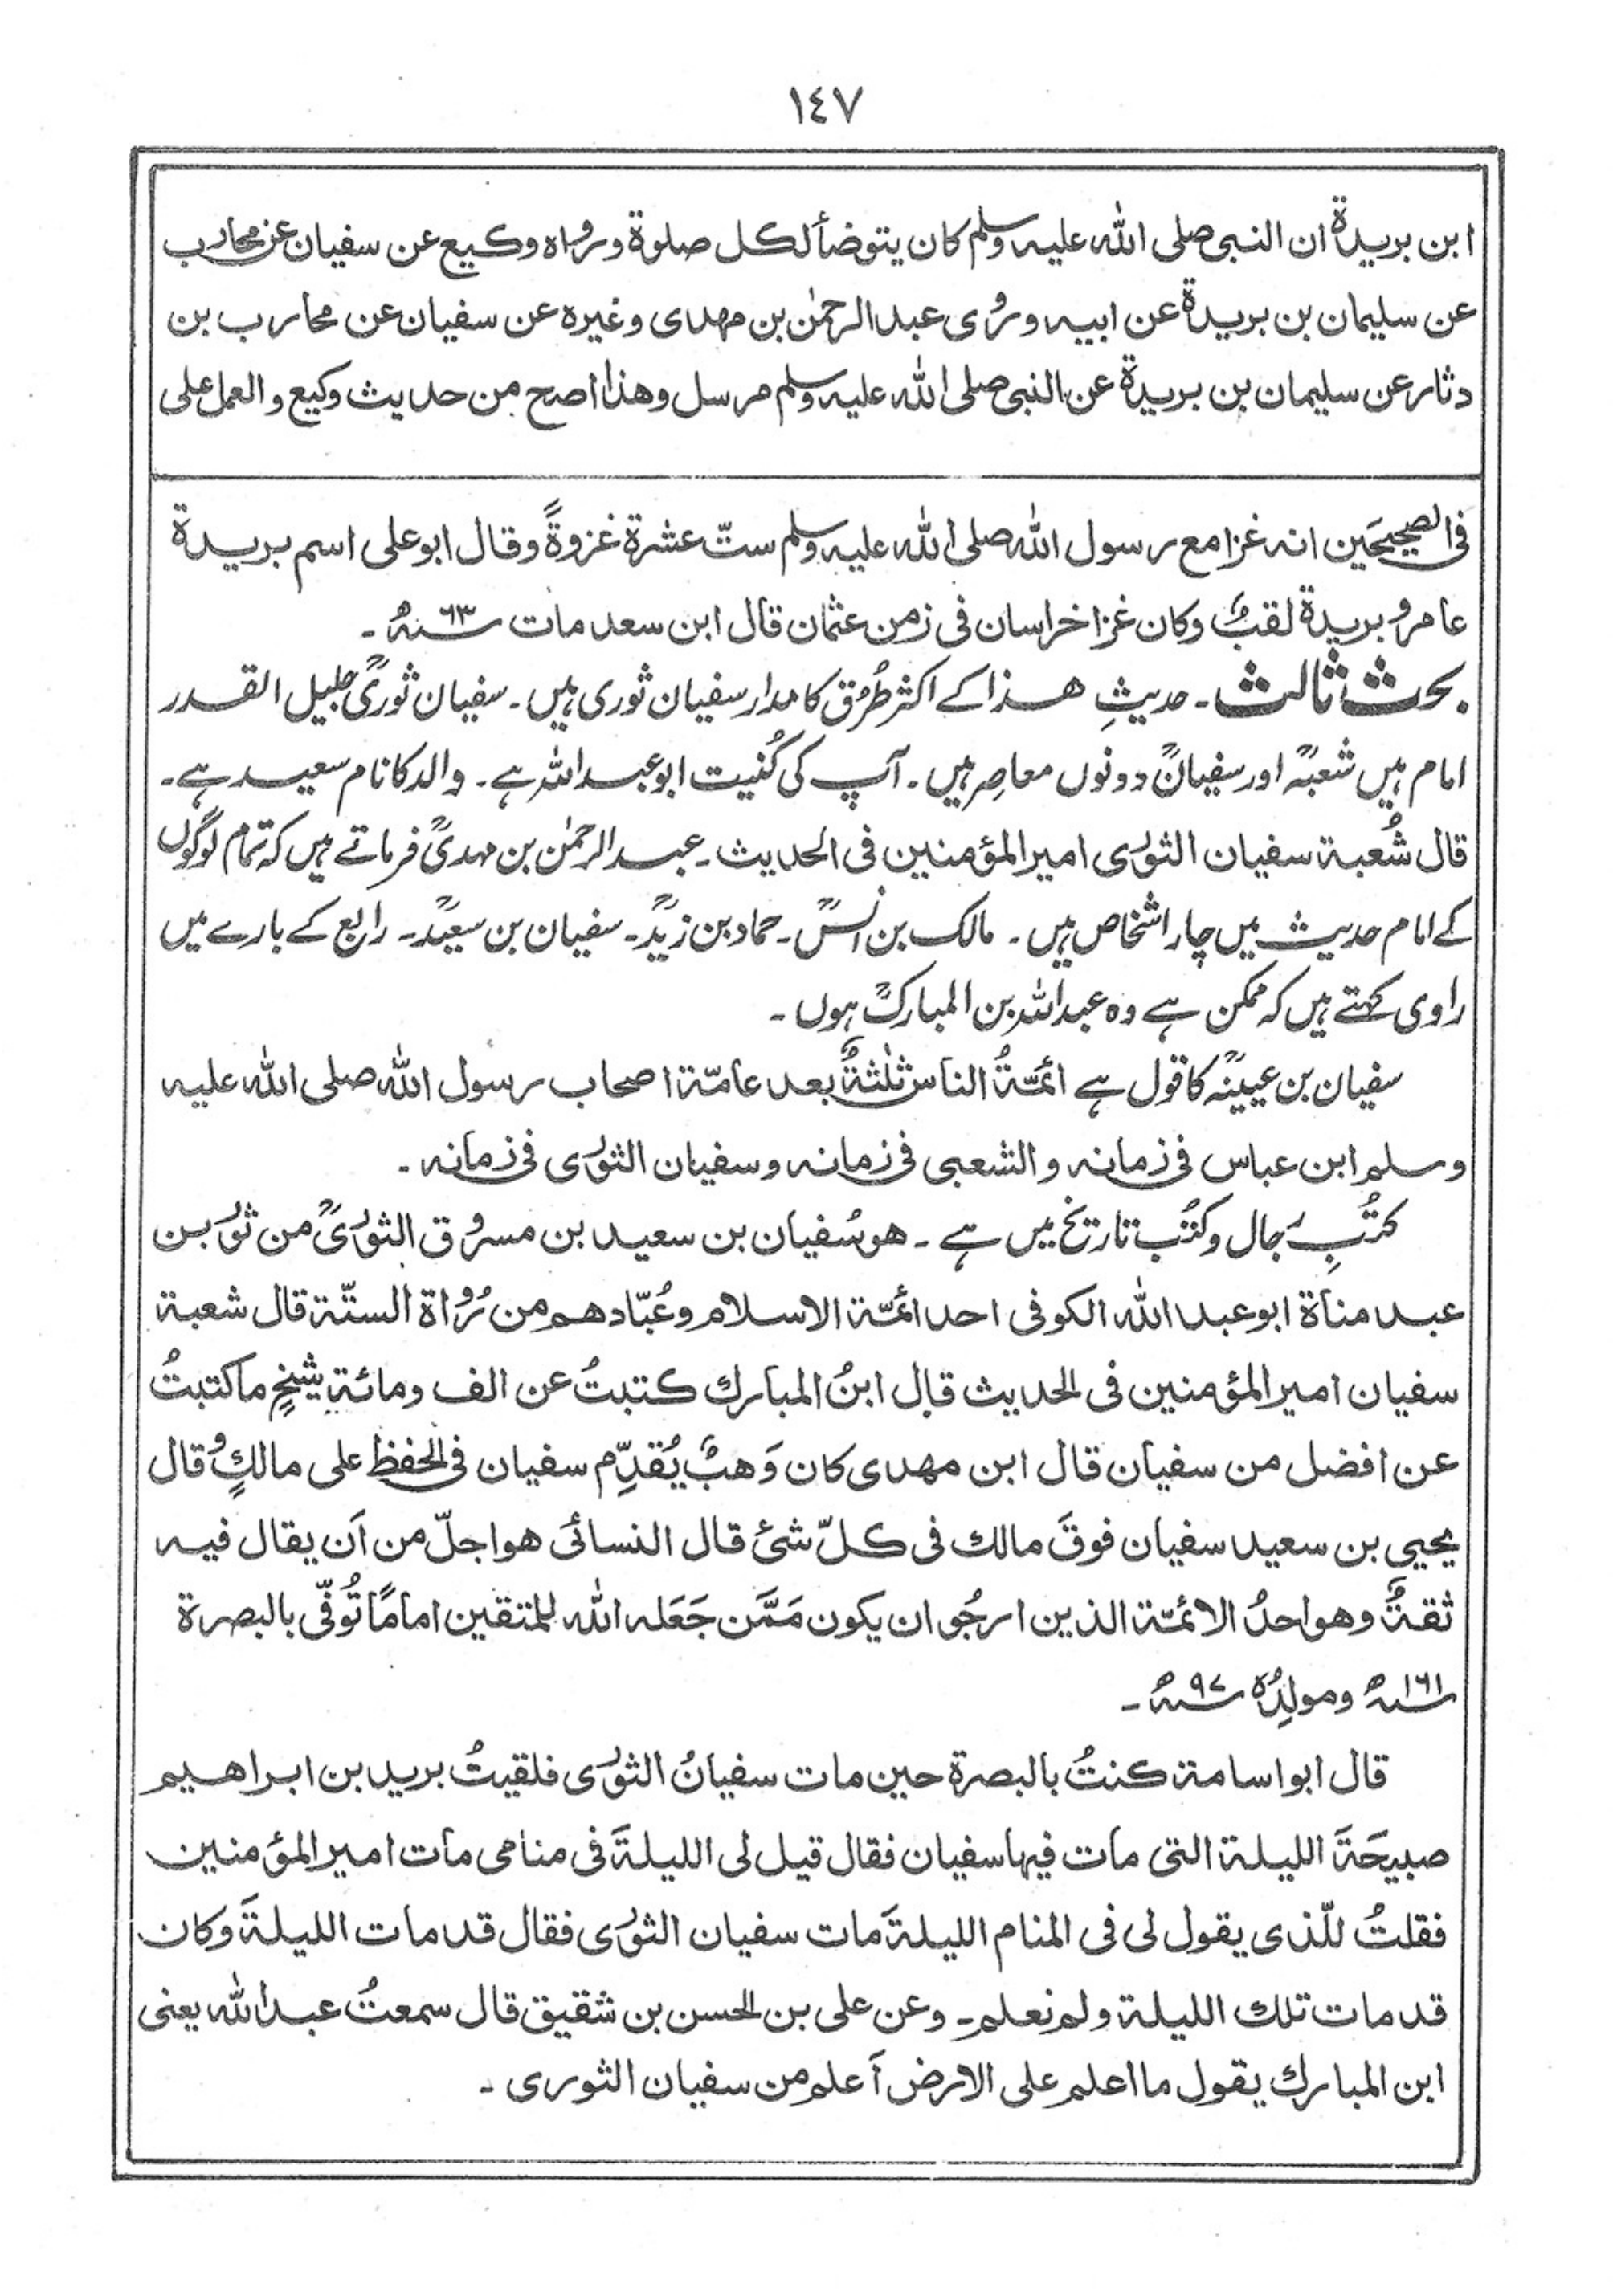 ١٤٧
ابن بريدة ان النبى صلى الله عليه وسلم كان يتوضأ لكل صلوة ورواه وكيع عن سفيان عن محارب
عن سليمان بن بريدة عن ابيه وروى عبد الرحمٰن بن مهدى وغيره عن سفيان عن محارب بن
دثار عن سليمان بن بريدة عن النبى صلى الله عليه وسلم مرسل وهذا اصح من حديث وكيع والعمل على
فى الصحيحَين انه غزا مع رسول الله صلى الله عليه وسلم ستّ عشرة غزوةً وقال ابو على اسم بريدة
عامر وبريدة لقبٌ وكان غزا خراسان فى زمن عثمان قال ابن سعد مات سنة ٦٣ھ۔
بحث ثالث۔ حدیثِ ھذا کے اکثر طُرُق کا مدار سفیان ثوری ہیں۔ سفیان ثوریؒ جلیل القدر
امام ہیں شعبہؒ اور سفیانؒ دونوں معاصِر ہیں۔ آپ کی کُنیت ابو عبد اللہ ہے۔ والد کا نام سعید ہے۔
قال شُعبة سفيان الثورى امير المؤمنين فى الحديث۔ عبد الرحمٰن بن مہدیؒ فرماتے ہیں کہ تمام لوگوں
کے امام حدیث میں چار اشخاص ہیں۔ مالک بن انسؒ۔ حماد بن زیدؒ۔ سفیان بن سعیدؒ۔ رابع کے بارے میں
راوی کہتے ہیں کہ ممکن ہے وہ عبد اللہ بن المبارکؒ ہوں۔
سفیان بن عیینہؒ کا قول ہے ائمّةُ الناس ثلٰثةٌ بعد عامّة اصحاب رسول الله صلى الله عليه
وسلم ابن عباس فى زمانه والشعبى فى زمانه وسفيان الثورى فى زمانه۔
کتُبِ رجال و کتُب تاریخ میں ہے۔ هو سُفيان بن سعيد بن مسروق الثورىؒ من ثور بن
عبد مناة ابو عبد الله الكوفى احد ائمّة الاسلام وعُبّادهم من رُواة الستّة قال شعبة
سفيان امير المؤمنين فى الحديث قال ابنُ المبارك كتبتُ عن الف ومائة شيخٍ ما كتبتُ
عن افضل من سفيان قال ابن مهدى كان وَهبٌ يُقدِّم سفيان فى الحفظ على مالكٍ وقال
يحيى بن سعيد سفيان فوقَ مالك فى كلّ شئ قال النسائى هو اجلّ من اَن يقال فيه
ثقةٌ وهو احدُ الائمّة الذين ارجُو ان يكون مَمَّن جَعَله الله للمتقين امامًا تُوفّى بالبصرة
سنة ١٦١ھ ومولِدُه سنة ٩٧ھ۔
قال ابو اسامة كنتُ بالبصرة حين مات سفيانُ الثورى فلقيتُ بريد بن ابراهيم
صبيحَةَ الليلة التى مات فيها سفيان فقال قيل لى الليلةَ فى منامى مات امير المؤمنين
فقلتُ للّذى يقول لى فى المنام الليلةَ مات سفيان الثورى فقال قد مات الليلةَ وكان
قد مات تلك الليلة ولم نعلم۔ وعن على بن الحسن بن شقيق قال سمعتُ عبد الله يعنى
ابن المبارك يقول ما اعلم على الارض اَعلم من سفيان الثورى۔